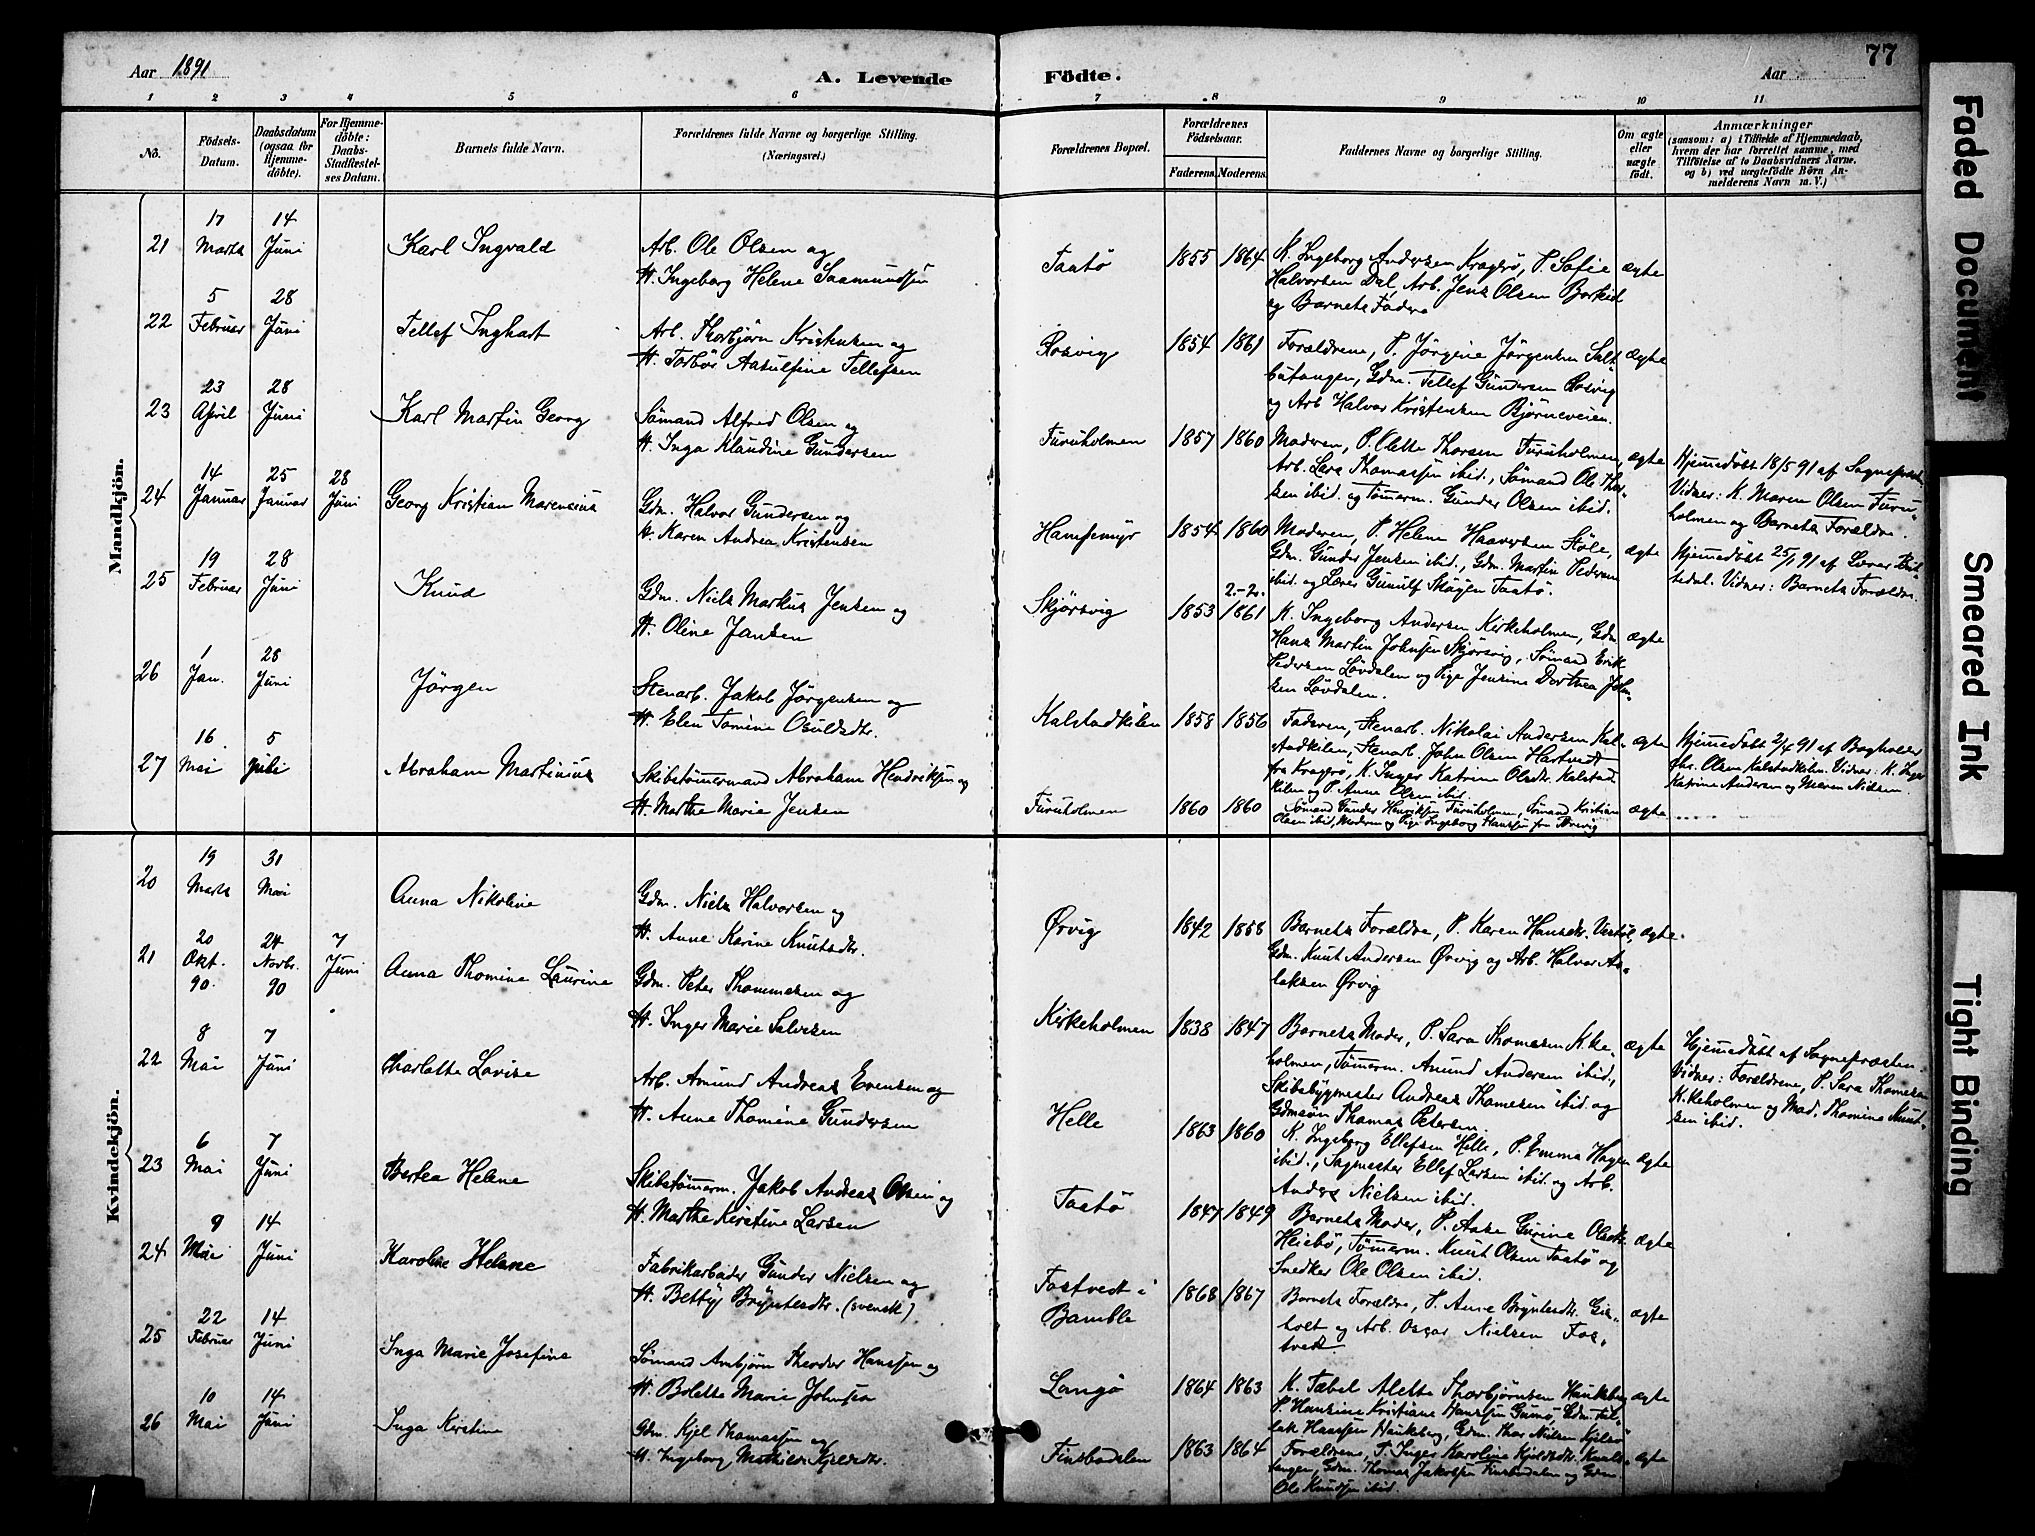 77
Aar 1891
A. Levende
Födte.
Aar
1 2 3 4 5 6 7 8 9 10 11
No.
Födsels-
Datum.
Daabsdatum
(ogsaa for
Hjemme-
döbte).
For Hjemme-
döbte:
Daabs-
Stadfæstel-
ses Datum.
Barnets fulde Navn.
Forældrenes fulde Navne og borgerlige Stilling.
(Næringsvei.)
Forældrenes Bopæl.
Forældrenes
Födselsaar.
Faderens. Moderens.
Faddernes Navne og borgerlige Stilling.
Om ægte
eller
uægte
födt.
Anmærkninger
(saasom: a) i Tilfælde af Hjemmedaab,
hvem der har forrettet samme, med
Tilföielse af to Daabsvidners Navne,
og b) ved uægtefödte Börn An-
melderens Navn m. V.)
Mandkjön.
21
17 Marts
14 Juni
Karl Ingvald
Arb. Ole Olsen og
H. Ingeborg Helene Saamundsen
Taatø
1855 1864
K. Ingeborg Andersen Kragerø, P. Sofie
Halvorsen Dal, Arb. Jens Olsen
og Barnets Fader
ægte
22
5 Februar
28 Juni
Tellef Inghart
Arb. Thorbjørn Kristensen og
H. Torbør Aasulfine Tellefsen
Rosvig
1854 1861
Forældrene, P. Jørgine Jørgensen Salt-
butangen, Gdm. Tellef Gundersen Rosvig
og Arb. Halvor Kristensen Bjørneveien.
ægte
23
23 April
28 Juni
Karl Martin Georg
Sømand Alfred Olsen og
H. Inga Klaudine Gundersen
Furuholmen
1857 1860
Moderen, P. Olette Thorsen Furuholmen,
Arb. Lars Thomassen ibid., Sømand Ole Thor-
sen ibid. og Tømerm. Gunder Olsen ibid.
ægte
Hjemmedøbt 18/5 91 af Sognepræst.
Vidner: K. Maren Olsen Furu-
holmen og Barnets Forældre.
24
14 Januar
25 Januar
28 Juni
Georg Kristian Marensius
Gdm. Halvor Gundersen og
H. Karen Andrea Kristensen
Hansemyr
1854 1860
Moderen, P. Helene Haaversen Støle,
Gdm. Gunder Jensen ibid., Gdm. Martin Pedersen
ibid. og Lærer Gunulf Skogen Taatø.
ægte
Hjemmedøbt 25/1 91 af Lærer
Vidner: Barnets Forældre.
25
19 Februar
28 Juni
Knud
Gdm. Niels Markus Jensen og
H. Oline Jansen
Skjørsvig
1853 1861
K. Ingeborg Andersen Kirkeholmen, Gdm.
Hans Martin Johnsen Skjørsvig, Sømand Erik
Pedersen Løvdalen og Pige Jensine Dorthea John-
sen Løvdalen.
ægte
26
1 Jan.
28 Juni
Jørgen
Stenarb. Jakob Jørgensen og
H. Elen Tomine Osuldsdtr.
Kalstadkilen
1858 1856
Faderen, Stenarb. Nikolai Andersen Kal-
stadkilen, Stenarb. John Olsen
fra Kragerø, K. Inger Katrine Olsdtr. Kalstad-
kilen og P. Anne Olsen ibid.
ægte
Hjemmedøbt 2/4 91 af
Chr. Olsen Kalstadkilen. Vidner: K. Inger
Katrine Andersen og Maren Nielsen
27
16 Mai
5 Juli
Abraham Martinius
Skibstømermand Abraham Hendriksen og
H. Marthe Marie Jensen
Furuholmen
1860 1860
Sømand Gunder Henriksen Furuholmen, Sømand Kristian
Olsen ibid, Moderen og Pige Ingeborg Hanssen fra
ægte
Kvindekjön.
20
19 Marts
31 Mai
Anna Nikoline
Gdm. Niels Halvorsen og
H. Anne Karine Knutsdtr.
Ørvig
1842 1858
Barnets Forældre, P. Karen Hansdtr.
Gdm. Knut Andersen Ørvig og Arb. Halvor As-
laksen Ørvig
ægte.
21
20 Okt. 90.
24 Novbr. 90
7 Juni
Anna Thomine Laurine
Gdm. Peter Thommesen og
H. Inger Marie Salvesen
Kirkeholmen
1838 1847
Barnets Moder, P. Sara Thomesen K.ke-
holmen, Tømerm. Amund Andersen ibid.,
Skibsbygmester Andreas Thomesen ibid. og
Gdmsøn Thomas Petersen.
ægte
Hjemmedøbt af Sognepræsten.
Vidner: Forældrene, P. Sara Thomesen
K.keholmen og Mad. Thomine Knud-
sen ibid.
22
8 Mai
7 Juni
Charlotte Lovise
Arb. Amund Andreas Evensen og
H. Anne Thomine Gundersen
Helle
1863 1860
K. Ingeborg Ellefsen Helle, P. Emma Hagen
ibid., Sagmester Ellef Larsen ibid. og Arb.
Anders Nielsen ibid.
ægte
23
6 Mai
7 Juni
Bertea Helene
Skibstømerm. Jakob Andreas Olsen og
H. Marthe Kirstine Larsen
Taatø
1847 1849
Barnets Moder, P. Aase Gurine Olsdtr.
Heiebø, Tømerm. Knut Olsen Taatø og
Snedker Ole Olsen ibid.
ægte
24
9 Mai
14 Juni
Karoline Helene
Fabrikarbeider Gunder Nielsen og
H. Betty Bryntesdtr. (svensk)
Fostvedt i
Bamble
1868 1867
Barnets Forældre, P. Anne Bryntesdtr.
holt og Arb. Oscar Nielsen Fos-
tvedt
ægte
25
22 Februar
14 Juni
Inga Marie Josefine
Sømand Arnbjørn Theodor Hanssen og
H. Bolette Marie Johnsen
Langø
1864 1863
K. Tabel Alette Thorbjørnsen Haukeberg
P. Hansine Kristiane Hanssen Gumø, Gdm. Tal-
lak Hanssen Haukeberg, Gdm. Thor Nilsen
ægte
26
10 Mai
14 Juni
Inga Kirstine
Gdm. Kjel Thomassen og
H. Ingeborg Mathilde Kjeldsdtr.
Finsbudalen
1863 1864
Forældrene, P. Inger Karoline Kjeldsdtr.
tangen, Gdm. Thomas Jakobsen Finsbudalen og Gdm.
Ole Knudsen ibid.
ægte
Faded Document
Smeared Ink
Tight Binding